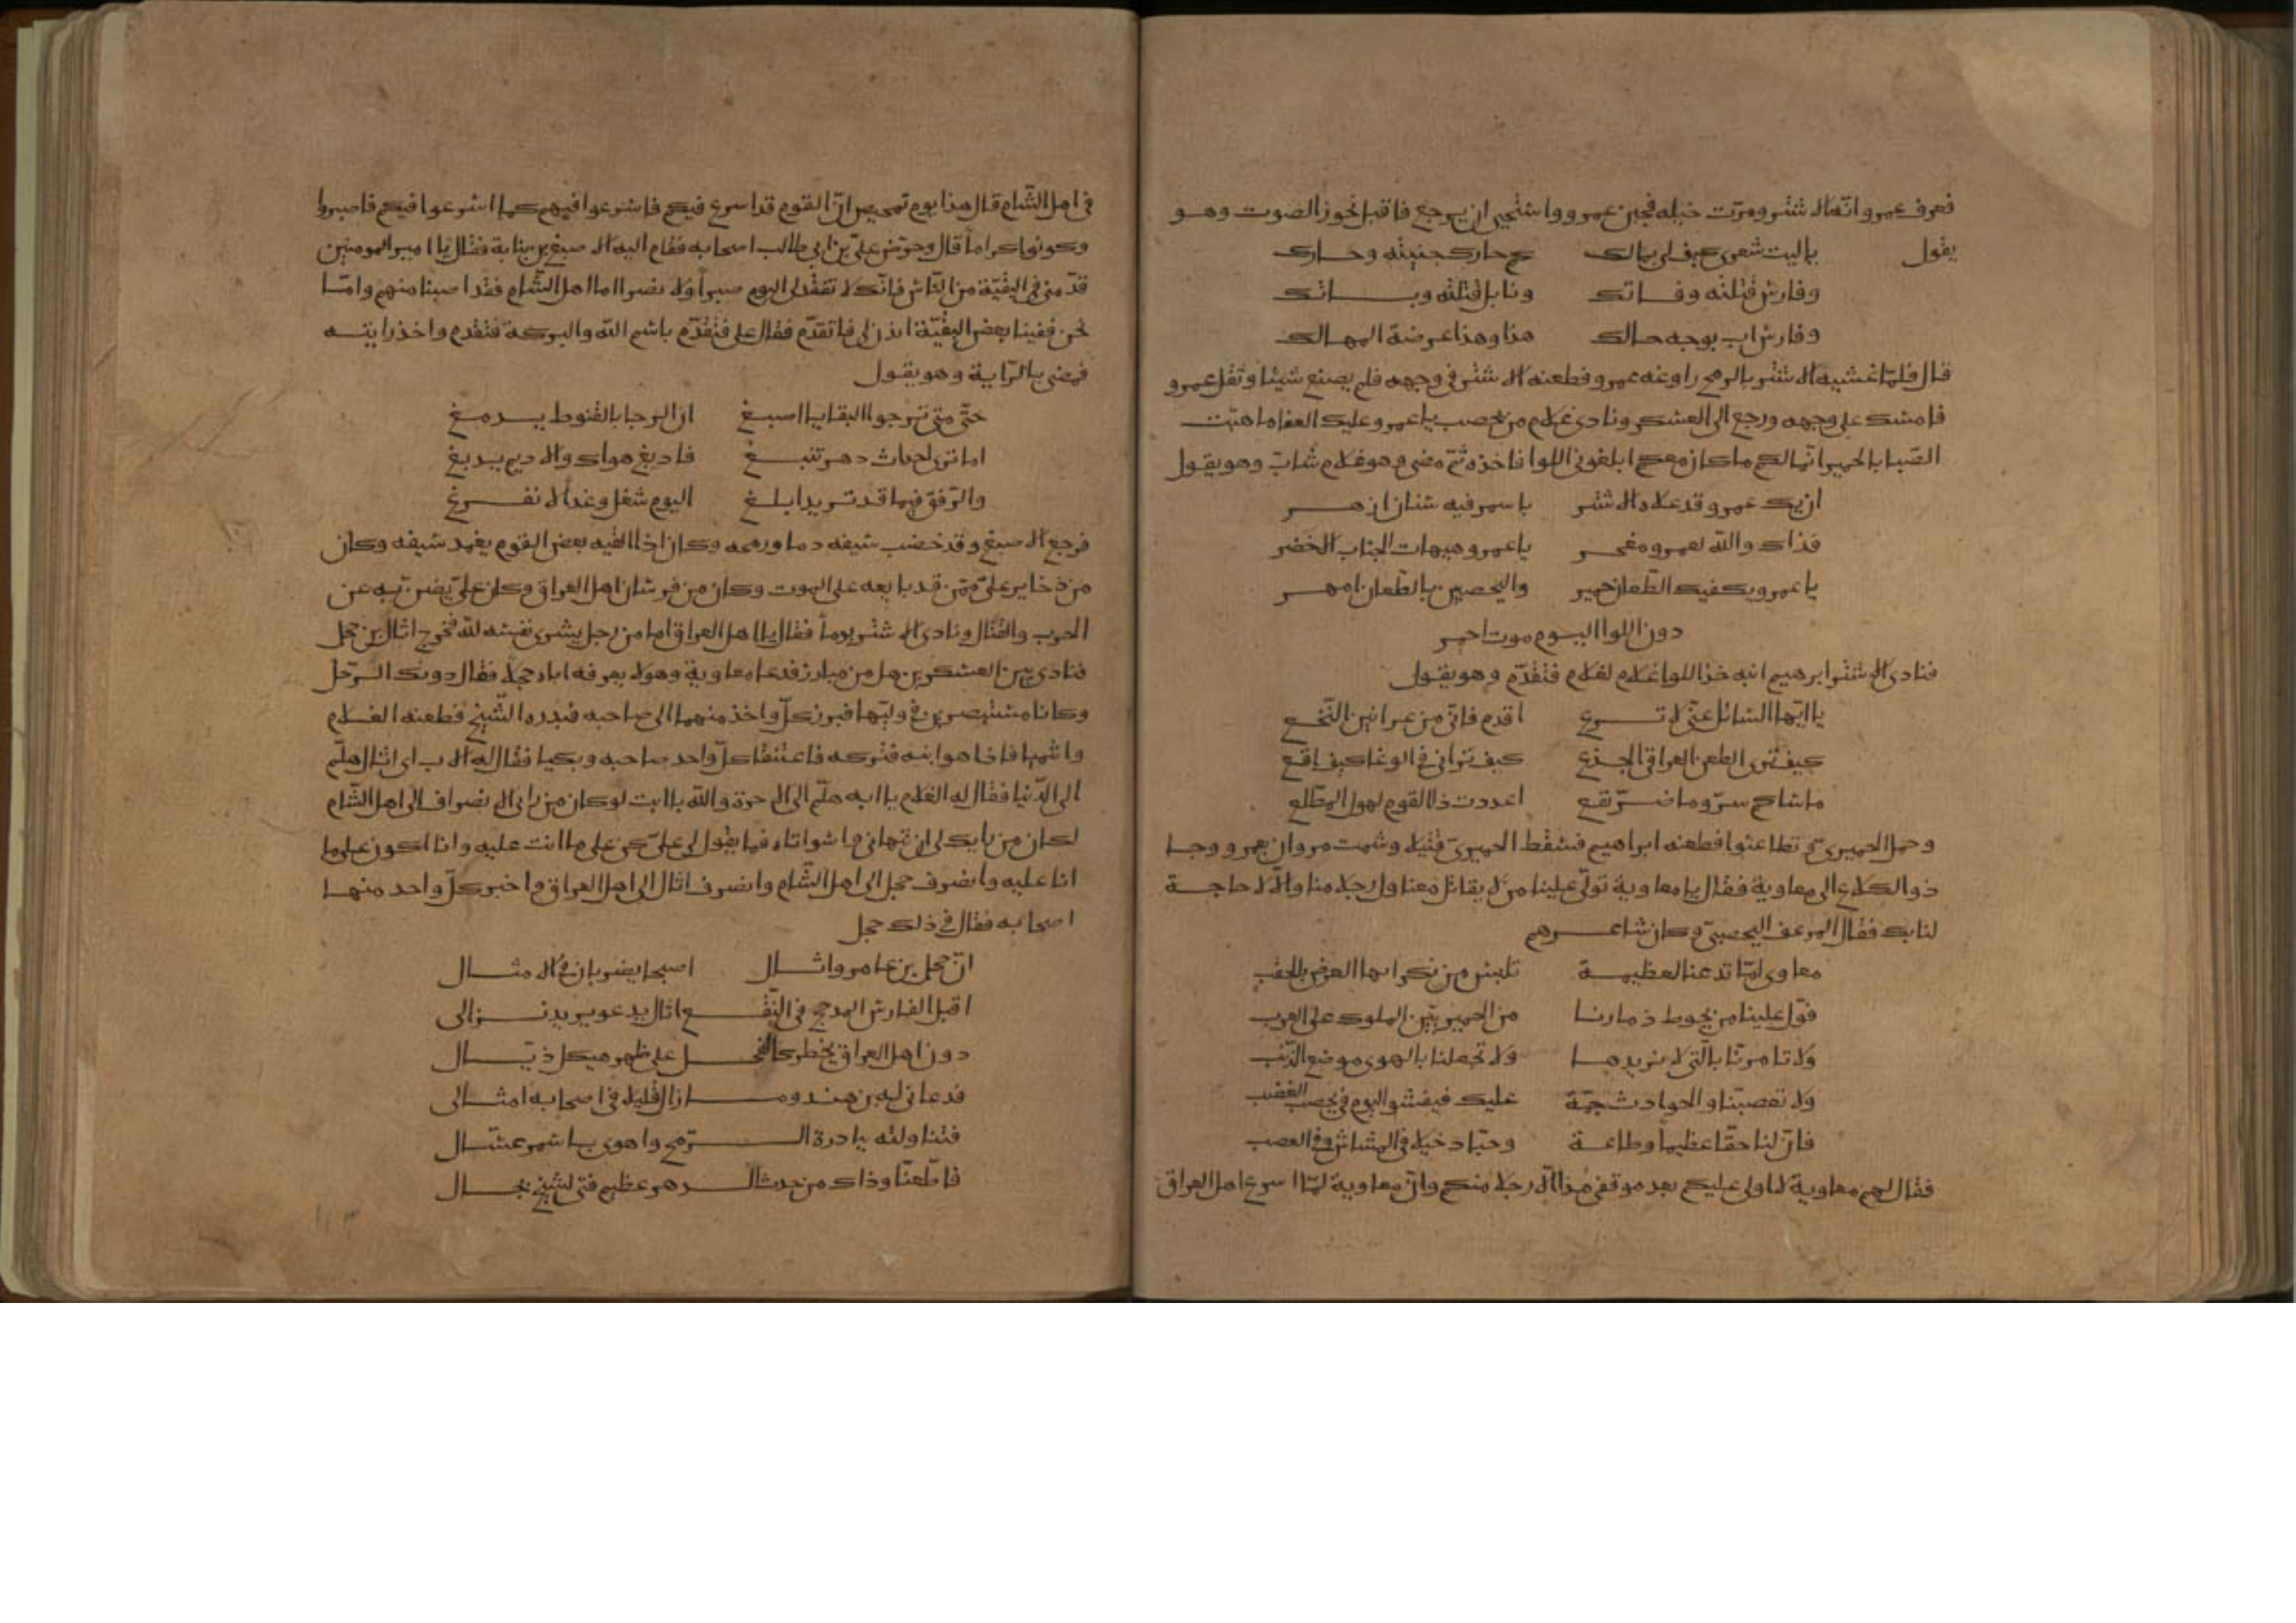 فعرف عمرو انّه الاشتر ومرّت خيله فجبن عمرو واستحيى ان يرجع فاقبل نحو الصوت وهو
يقول يا ليت شعرى كيف لى بمالك كم حارك جنيته وحارك
وفارس قتلته وفاتك ونابل قتلته وباتك
وفارس اب بوجه حالك هذا وهذا عرضة المهالك
قال فلمّا غشيه الاشتر بالرمح راوغه عمرو فطعنه الاشتر فى وجهه فلم يصنع شيئا وثقل عمرو
فامسك على وجهه ورجع الى العسكر ونادى غلام من يحصب يا عمرو عليك العفا ما هبّت
الصّبا يا لحمير انّما لكم ما كان معكم ابلغونى اللوا فاخذه ثمّ مضى وهو غلام شابّ وهو يقول
ان يك عمرو قد علاه الاشتر باسمر فيه سنان ازهر
فذاك والله لعمرو مفخر يا عمرو هيهات الجناب الاخضر
يا عمرو يكفيك الطّعان حمير واليحصبىّ بالطّعان امهر
دون اللوا اليوم موت احمر
فنادى الاشتر ابرهيم ابنه خذ اللوا غلام لغلام فتقدّم وهو يقول
يا ايّها السّائل عنّى لا ترع اقدم فانّى من عرانين النّخع
كيف ترى الطعن العراقى الجذع كيف ترانى فى الوغا كيف اقع
ما ساكم سرّ وما ضرّ نفع اعددت ذا القوم لهول المطّلع
وحمل الحميرىّ ثم تطاعنوا فطعنه ابراهيم فسقط الحميرىّ قتيلا وشمت مروان بعمرو وجا
ذو الكلاع الى معاوية فقال يا معاوية تولّى علينا من لا يقاتل معنا ولّ رجلا منا والّا لا حاجة
لنا بك فقال المرعف اليحصبىّ وكان شاعرهم
معاوى امّا تدعنا لعظيمة تلبس من نكرايها الغرض بالحقب
فولّ علينا من يحوط ذمارنا من الحميريّين الملوك على العرب
ولا تامرنّا بالّتى لا نريدها ولا تجعلنا بالهوى موضع الذّنب
ولا تغصبنّا والحوادث جمّة عليك فيفشو اليوم فى يحصب الغضب
فانّ لنا حقّا عظيما وطاعة وحبّا دخيلا فى المشاش وفى العصب
فقال لهم معاوية لا اولى عليكم بعد موقفى هذا الّا رجلا منكم وانّ معاوية لمّا اسرع اهل العراق
فى اهل الشّام قال هذا يوم تمحيص انّ القوم قد اسرع فيكم فاسرعوا فيهم كما اسرعوا فيكم فاصبروا
وكونوا كراماً قال وحرّض علىّ بن ابى طالب اصحابه فقام اليه الاصبغ بن نباتة فقال يا امير المومنين
قدّمنى فى البقيّة من النّاس فانّك لا تفقد لى اليوم صبراً ولا نصرا اما اهل الشّام فقد اصبنا منهم وامّا
نحن ففينا بعض البقيّة ايذن لى فاتقدّم فقال على فتقدّم باسم الله والبركة فتقدم واخذ رايته
فمضى بالرّاية وهو يقول
حتّى متى ترجوا البقايا اصبغ ان الرجا بالقنوط يدمغ
اما ترى احداث دهر تنبغ فادبغ هواك والاديم يدبغ
والرّفق فيما قد تريد ابلغ اليوم شغل وغداً لا نفرغ
فرجع الاصبغ وقد خضب سيفه دما ورمحه وكان اذا لقيه بعض القوم يغمد سيفه وكان
من ذخاير علىّ ممّن قد بايعه على الموت وكان من فرسان اهل العراق وكان علىّ يضنّ به عن
الحرب والقتال ونادى الاشتر يوماً فقال يا اهل العراق اما من رجل يشرى نفسه لله فخرج اثال بن حجل
فنادى بين العسكرين هل من مبارز فدعا معاوية وهو لا يعرفه اباه حجلا فقال دونك الرّجل
وكانا مستبصرين فى رايهما فبرز كلّ واحد منهما الى صاحبه فبدره الشّيخ فطعنه الغلام
وانتميا فاذا هو ابنه فتركه فاعتنقا كلّ واحد صاحبه وبكيا فقال له الاب اى اثال هلّم
الى الدّنيا فقال له الغلام يا ابه هلّم الى الاخرة والله يا ابت لو كان من رايى الانصراف الى اهل الشّام
لكان من رايك لى ان تنهانى وا سوأتاه فما يقول لى علىّ كن على ما انت عليه وانا اكون على ما
انا عليه وانصرف حجل الى اهل الشّام وانصرف اثال الى اهل العراق واخبر كلّ واحد منهما
اصحابه فقال فى ذلك حجل
انّ حجل بن عامر واثال اصبحا يضربان فى الامثال
اقبل الفارس المدجج فى النّقع اثال يدعو يريد نزالى
دون اهل العراق يخطر كالفحل على ظهر هيكل ذيّال
فدعانى له بن هند وما زال قليلا فى اصحابه امثالى
فتناولته ببادرة الرّمح واهوى باسمر عسّال
فاطّعنّا وذاك من حدث الدهر عظيم فتى لشيخ بجال